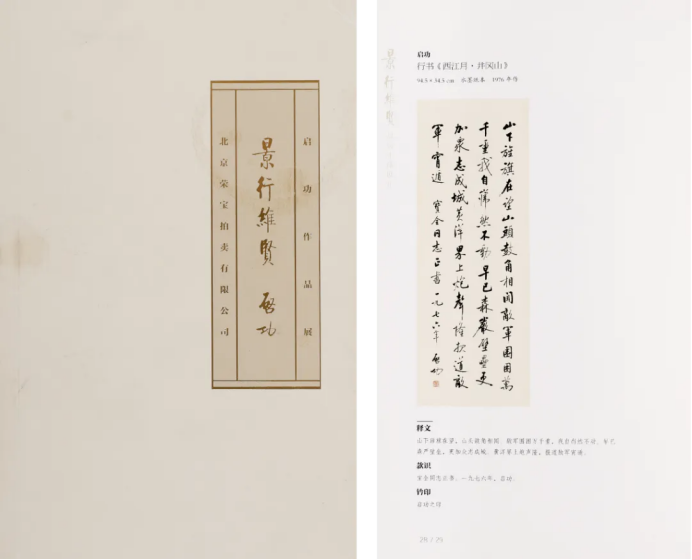 启功作品展
景行維賢 啓功
北京荣宝拍卖有限公司
景行維賢
启功
行书《西江月·井冈山》
94.5×34.5 cm 水墨纸本 1976年作
山下旌旗在望山頭鼓角相聞敵軍圍困萬
千重我自巋然不動早已森嚴壁壘更
加衆志成城黃洋界上炮聲隆報道敵
軍宵遁 寶全同志正書 一九七六年 啓功
释文
山下旌旗在望，山头鼓角相闻。敌军围困万千重，我自岿然不动。早已
森严壁垒，更加众志成城。黄洋界上炮声隆，报道敌军宵遁。
款识
宝全同志正书，一九七六年，启功。
钤印
启功之印
28 / 29